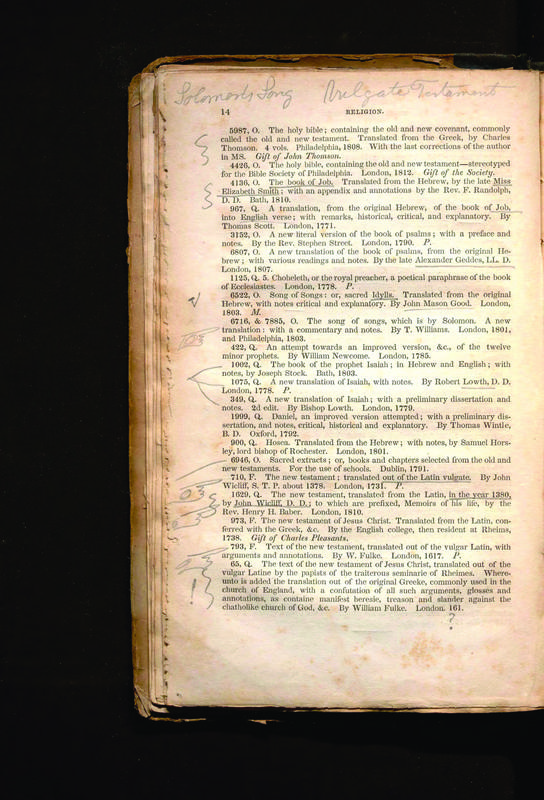 Solomon's Song Vulgate Testament
14 RELIGION.
5987, O. The holy bible; containing the old and new covenant, commonly
called the old and new testament. Translated from the Greek, by Charles
Thomson. 4 vols. Philadelphia, 1808. With the last corrections of the author
in MS. Gift of John Thomson.
4426, O. The holy bible, containing the old and new testament—stereotyped
for the Bible Society of Philadelphia. London, 1812. Gift of the Society.
4136, O. The book of Job. Translated from the Hebrew, by the late Miss
Elizabeth Smith; with an appendix and annotations by the Rev. F. Randolph,
D. D. Bath, 1810.
967, Q. A translation, from the original Hebrew, of the book of Job,
into English verse; with remarks, historical, critical, and explanatory. By
Thomas Scott. London, 1771.
3152, O. A new literal version of the book of psalms; with a preface and
notes. By the Rev. Stephen Street. London, 1790. P.
6807, O. A new translation of the book of psalms, from the original He-
brew; with various readings and notes. By the late Alexander Geddes, LL. D.
London, 1807.
1125, Q. 5. Choheleth, or the royal preacher, a poetical paraphrase of the book
of Ecclesiastes. London, 1778. P.
6522, O. Song of Songs: or, sacred Idylls. Translated from the original
Hebrew, with notes critical and explanatory. By John Mason Good. London,
1803. M.
6716, & 7885, O. The song of songs, which is by Solomon. A new
translation: with a commentary and notes. By T. Williams. London, 1801,
and Philadelphia, 1803.
422, Q. An attempt towards an improved version, &c., of the twelve
minor prophets. By William Newcome. London, 1785.
1002, Q. The book of the prophet Isaiah; in Hebrew and English; with
notes, by Joseph Stock. Bath, 1803.
1075, Q. A new translation of Isaiah, with notes. By Robert Lowth, D. D.
London, 1778. P.
349, Q. A new translation of Isaiah; with a preliminary dissertation and
notes. 2d edit. By Bishop Lowth. London, 1779.
1999, Q. Daniel, an improved version attempted; with a preliminary dis-
sertation, and notes, critical, historical and explanatory. By Thomas Wintle,
B. D. Oxford, 1792.
900, Q. Hosea. Translated from the Hebrew; with notes, by Samuel Hors-
ley, lord bishop of Rochester. London, 1801.
6946, O. Sacred extracts; or, books and chapters selected from the old and
new testaments. For the use of schools. Dublin, 1791.
710, F. The new testament; translated out of the Latin vulgate. By John
Wicliff, S. T. P. about 1378. London, 1731. P.
1629, Q. The new testament, translated from the Latin, in the year 1380,
by John Wicliff, D. D.; to which are prefixed, Memoirs of his life, by the
Rev. Henry H. Baber. London, 1810.
973, F. The new testament of Jesus Christ. Translated from the Latin, con-
ferred with the Greek, &c. By the English college, then resident at Rheims,
1738. Gift of Charles Pleasants.
793, F. Text of the new testament, translated out of the vulgar Latin, with
arguments and annotations. By W. Fulke. London, 1617. P.
65, Q. The text of the new testament of Jesus Christ, translated out of the
vulgar Latine by the papists of the traiterous seminarie of Rheimes. Where-
unto is added the translation out of the original Greeke, commonly used in the
church of England, with a confutation of all such arguments, glosses and
annotations, as containe manifest heresie, treason and slander against the
chatholike church of God, &c. By William Fulke. London. 161.
?